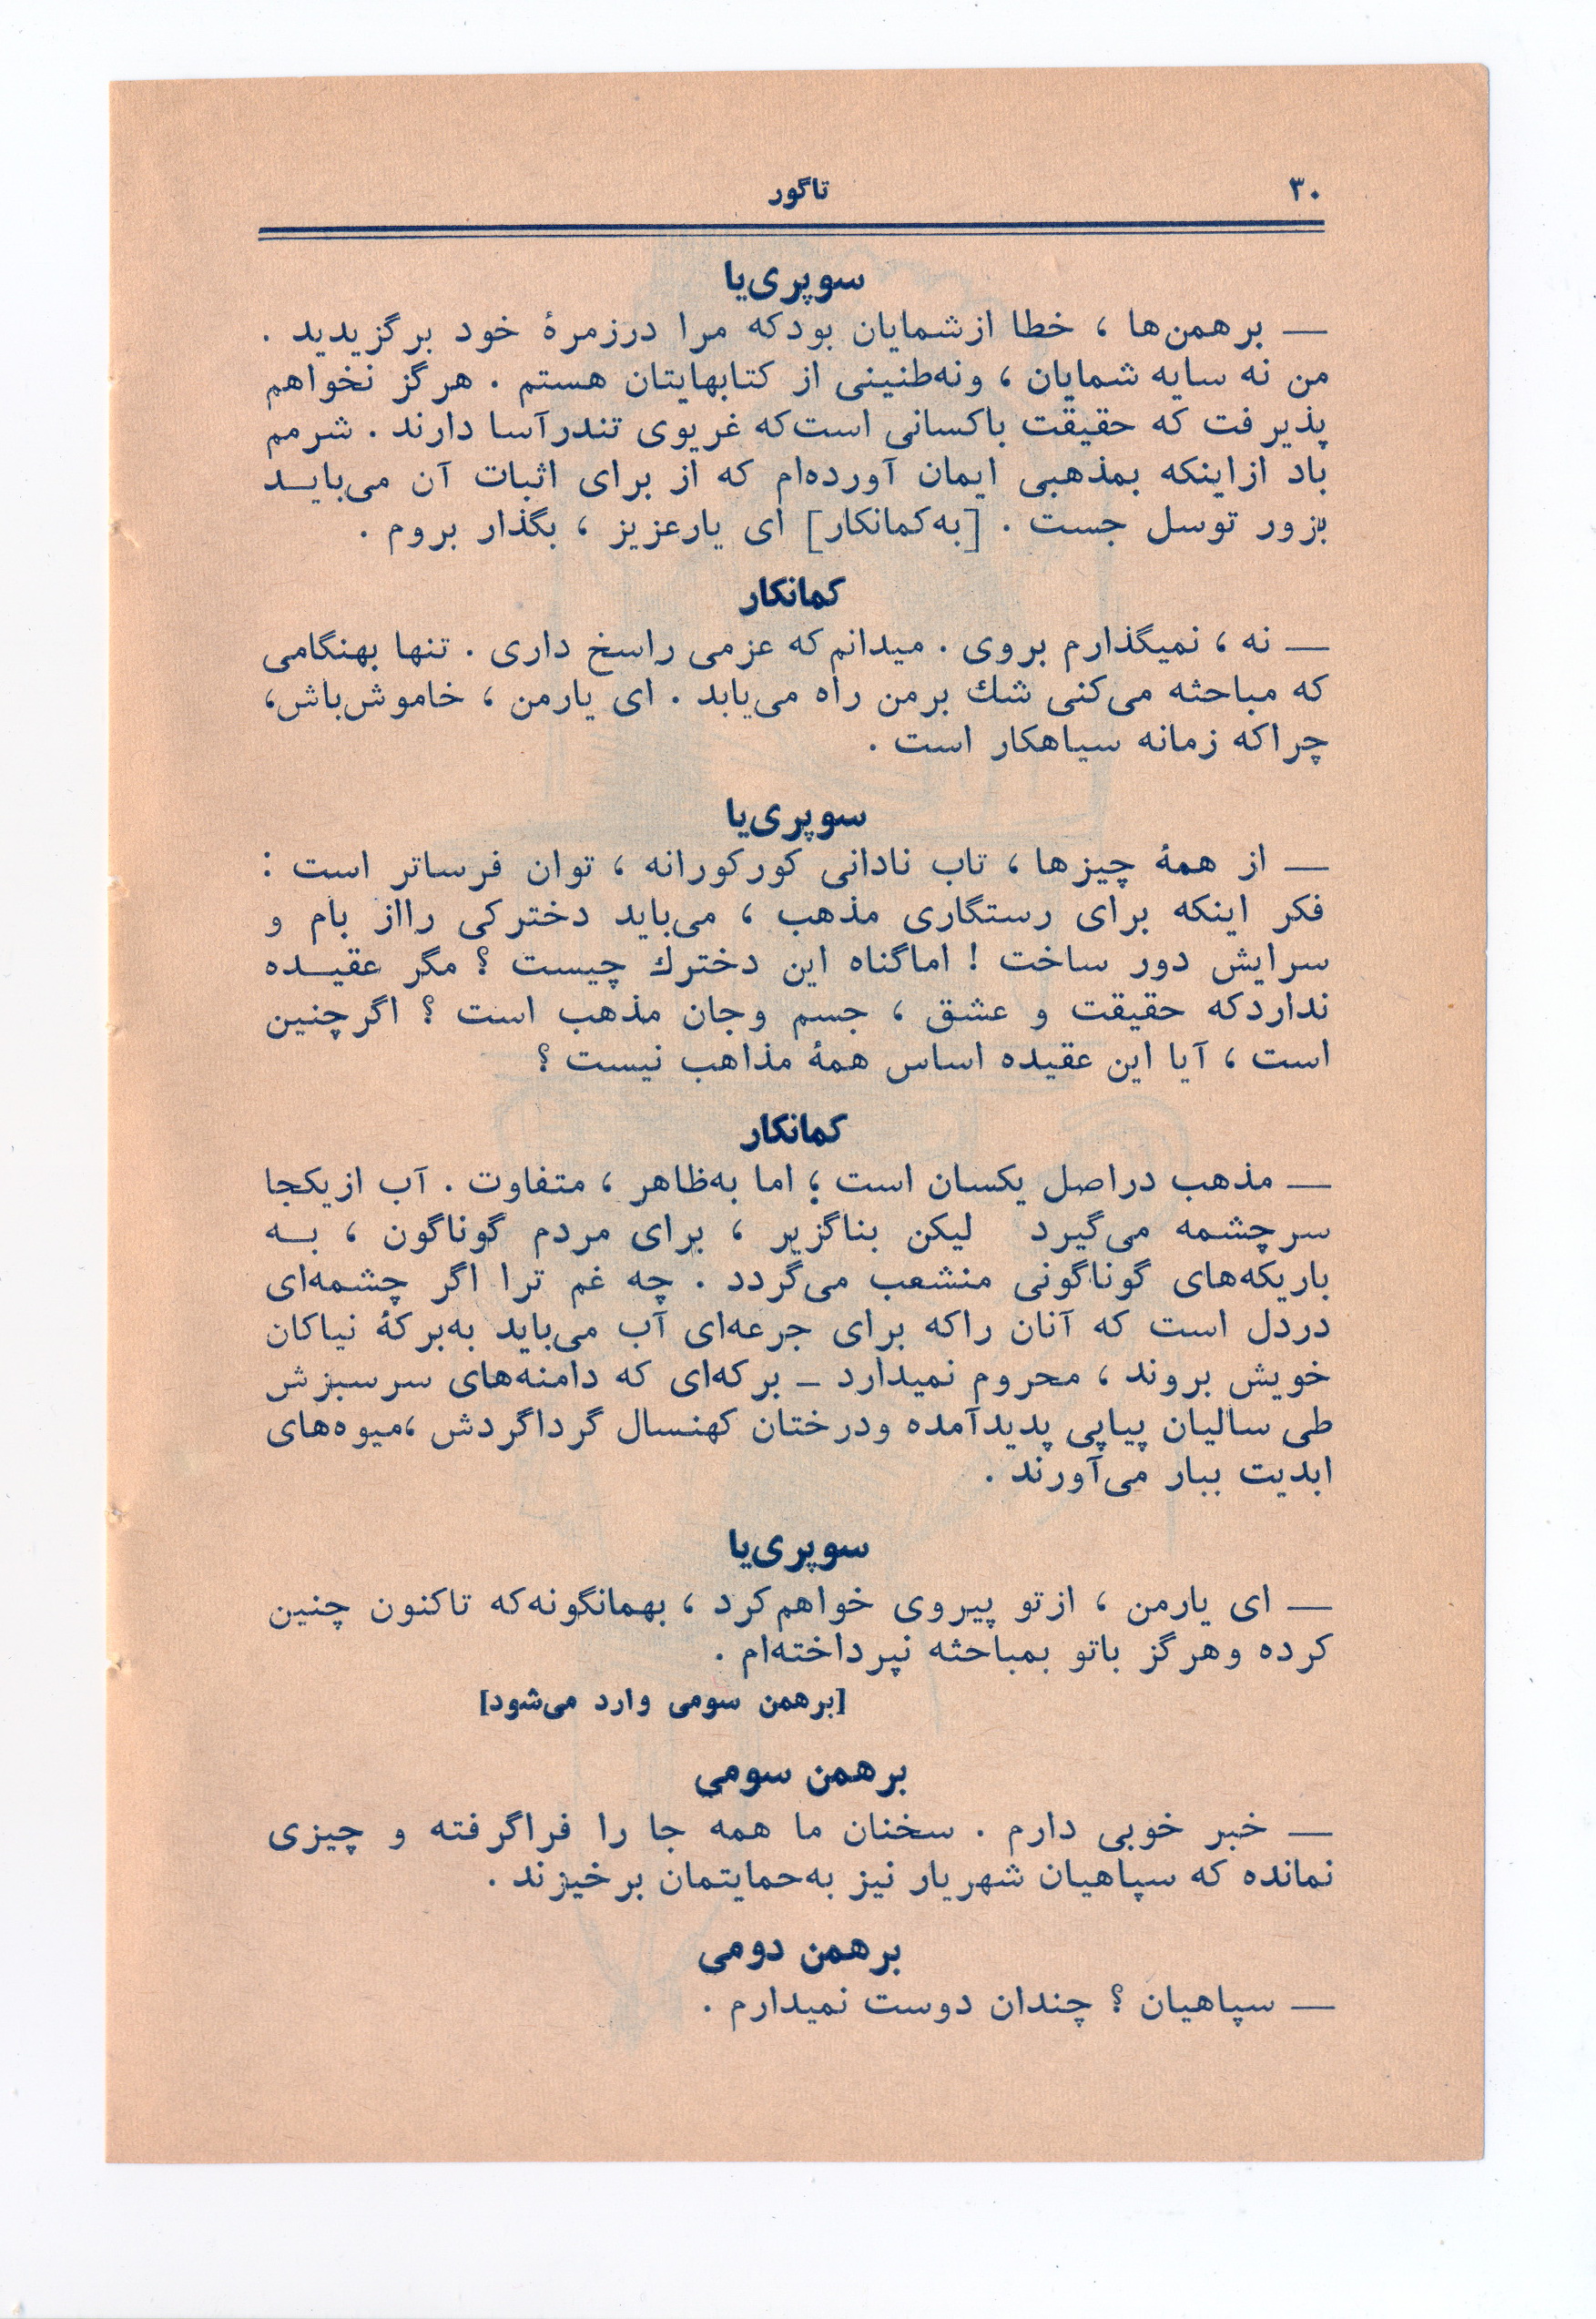 ۳۰
تاگور
سوپری‌یا
— برهمن‌ها ، خطا ازشمایان بودکه مرا درزمرهٔ خود برگزیدید .
من نه سایه شمایان ، ونه‌طنینی از کتابهایتان هستم . هرگز نخواهم
پذیرفت که حقیقت باکسانی است‌که غریوی تندرآسا دارند . شرمم
باد ازاینکه بمذهبی ایمان آورده‌ام که از برای اثبات آن می‌بایـد
بزور توسل جست . [به‌کمانکار] ای یارعزیز ، بگذار بروم .
کمانکار
— نه ، نمیگذارم بروی . میدانم‌که عزمی راسخ داری . تنها بهنگامی
که مباحثه می‌کنی شك برمن راه می‌یابد . ای یارمن ، خاموش‌باش،
چراکه زمانه سیاهکار است .
سوپری‌یا
— از همهٔ چیزها ، تاب نادانی کورکورانه ، توان فرساتر است :
فکر اینکه برای رستگاری مذهب ، می‌باید دخترکی رااز بام و
سرایش دور ساخت ! اماگناه این دخترك چیست ؟ مگر عقیـده
نداردکه حقیقت و عشق ، جسم وجان مذهب است ؟ اگرچنین
است ، آیا این عقیده اساس همهٔ مذاهب نیست ؟
کمانکار
— مذهب دراصل یکسان است ؛ اما به‌ظاهر ، متفاوت . آب ازیکجا
سرچشمه می‌گیرد لیکن بناگزیر ، برای مردم گوناگون ، بـه
باریکه‌های گوناگونی منشعب می‌گردد . چه غم ترا اگر چشمه‌ای
دردل است که آنان راکه برای جرعه‌ای آب می‌باید به‌برکهٔ نیاکان
خویش بروند ، محروم نمیدارد ــ برکه‌ای که دامنه‌های سرسبزش
طی سالیان پیاپی پدیدآمده ودرختان کهنسال گرداگردش ،میوه‌های
ابدیت ببار می‌آورند .
سوپری‌یا
— ای یارمن ، ازتو پیروی خواهم‌کرد ، بهمانگونه‌که تاکنون چنین
کرده وهرگز باتو بمباحثه نپرداخته‌ام .
[برهمن سومی وارد می‌شود]
برهمن سومی
— خبر خوبی دارم . سخنان ما همه جا را فراگرفته و چیزی
نمانده که سپاهیان شهریار نیز به‌حمایتمان برخیزند .
برهمن دومی
— سپاهیان ؟ چندان دوست نمیدارم .